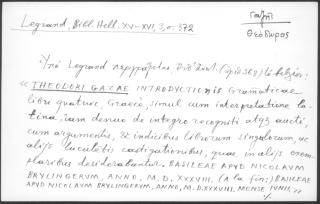 Legrand, Bibl. Hell. XV-XVI, 3, σ. 372
Γαζῆς
Θεόδωρος
Ὑπὸ Legrand περιγράφεται,
« THEODORI GAZAE INTRODUCTIONIS Grammaticae
libri quatuor, Graecè, simul cum interpretatione La-
tina, iam denuo de integro recogniti atque aucti,
cum argumentis, & indicibus librorum singulorum, ac
alijs luculetis castigationibus, quae in alijs exem-
plaribus desiderabantur. BASILEAE APVD NICOLAVM
BRYLINGERVM, ANNO, M.D.XXXVIII. (A la fin:) BASILEAE
APVD NICOLAVM BRYLINGERVM, ANNO, M.D.XXXVIII. MENSE IVNII. »